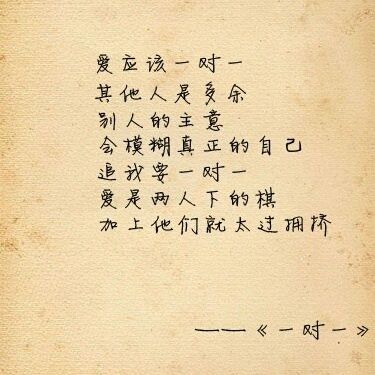 爱应该一对一
其他人是多余
别人的主意
会模糊真正的自己
追我要一对一
爱是两人下的棋
加上他们就太过拥挤
——《一对一》